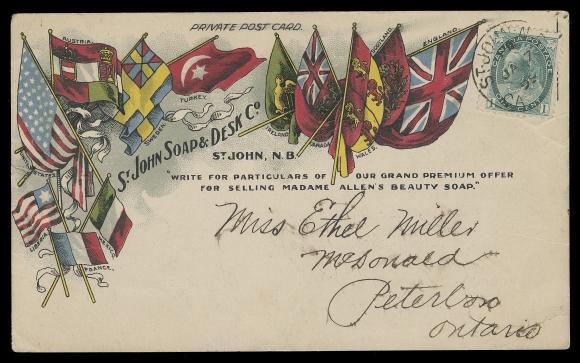 PRIVATE POST CARD.
AUSTRIA.
SWEDEN
TURKEY
IRELAND
CANADA
SCOTLAND
WALES
ENGLAND
UNITED STATES
LIBERIA
MEXICO
FRANCE.
ST. JOHN SOAP & DESK CO.
ST. JOHN, N.B.
"WRITE FOR PARTICULARS OF OUR GRAND PREMIUM OFFER
FOR SELLING MADAME ALLEN'S BEAUTY SOAP."
ST. JOHN
CA
POSTAGE
Miss Ethel Miller
McDonald
Peterboro
Ontario